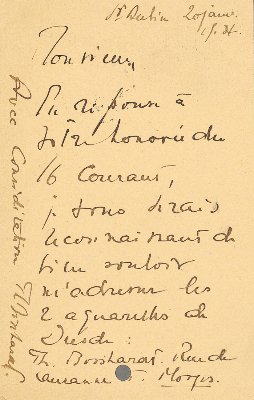 20 janv.
Monsieur,
En réponse à
votre honorée du
16 Courant,
je vous serais
reconnaissant de
bien vouloir
m'adresser les
2 aquarelles de
Dresde :
Th. Bosshardt. Rue de
Lausanne Morges.
Avec Considération